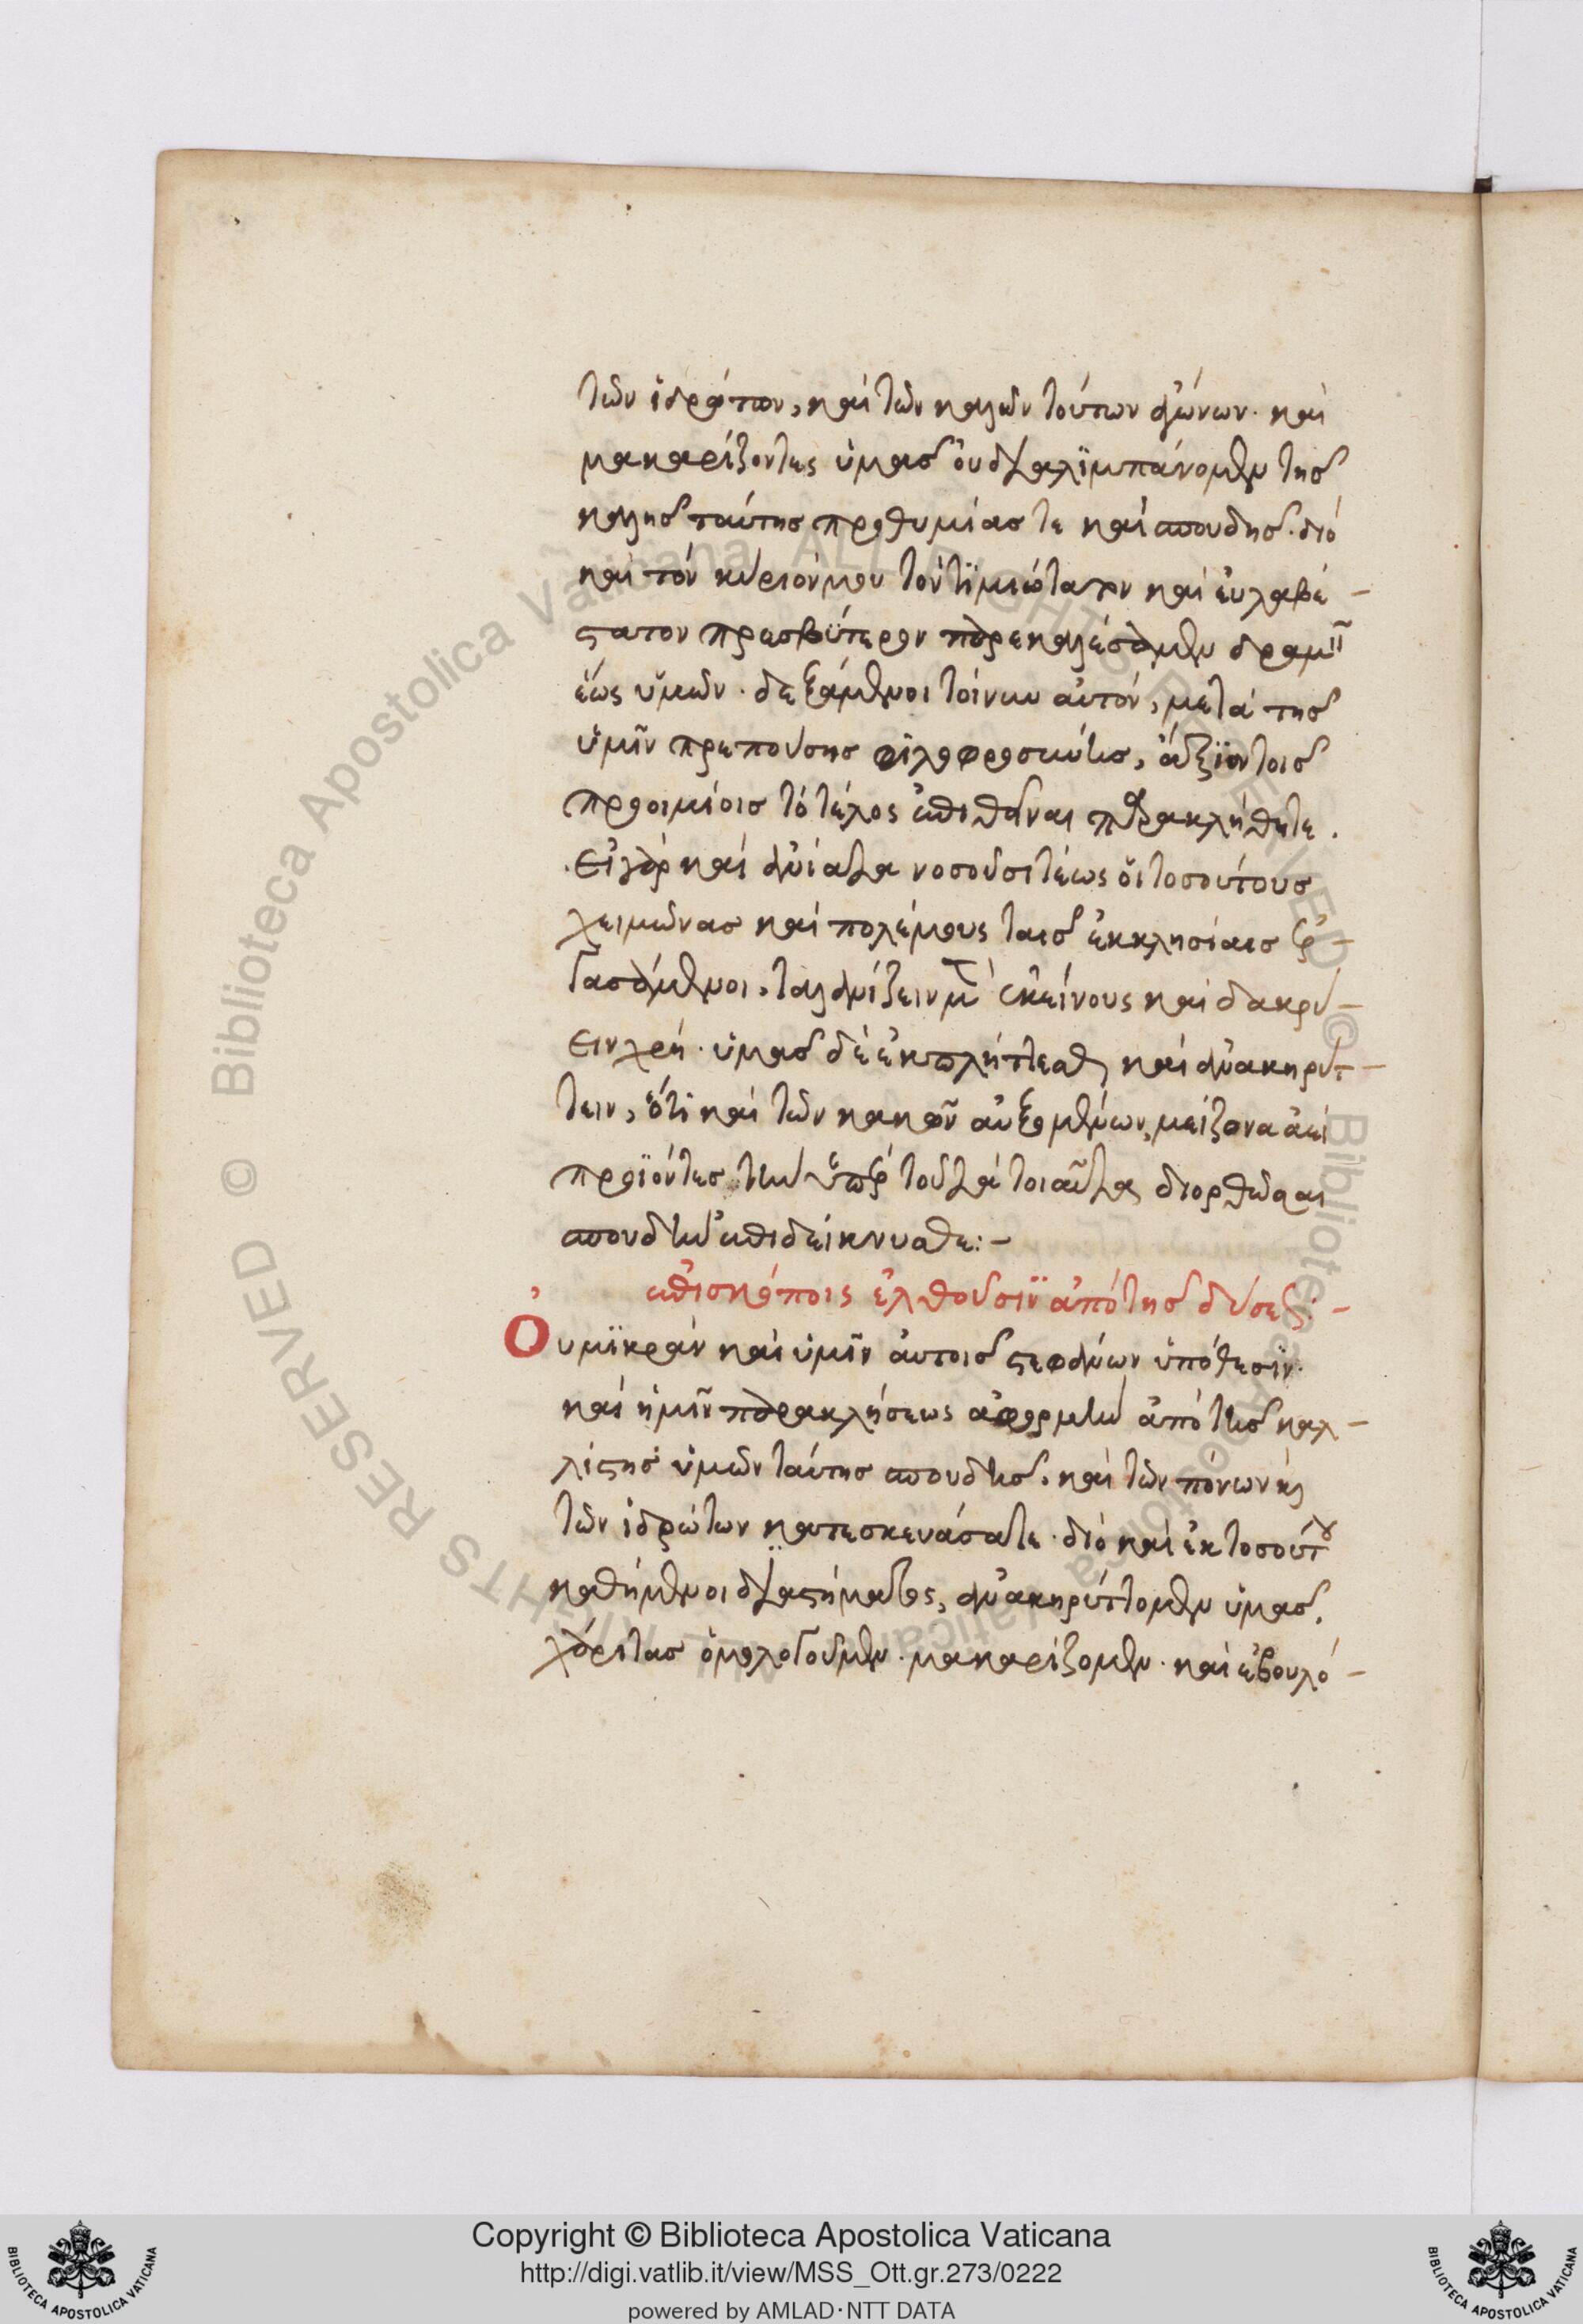 τῶν ἱδρώτων, καὶ τῶν καλῶν τούτων ἀγώνων· καὶ
μακαρίζοντες ὑμᾶς οὐ διαλϊμπάνομεν τῆς
καλῆς ταύτης προθυμίας τε καὶ σπουδῆς· διὸ
καὶ τὸν κύριόν μου τὸν τϊμιώτατον καὶ εὐλαβέ-
στατον πρεσβύτερον παρεκαλέσαμεν δραμεῖν
ἕως ὑμῶν· δεξάμενοι τοίνυν αὐτὸν, μετὰ τῆς
ὑμῖν πρεπούσης φϊλοφροσύνης, ἄξϊον τοῖς
προοιμίοις τὸ τέλος ἐπιθεῖναι παρακλήθητε.
Εἰ γὰρ καὶ ἀνίατα νοσοῦσι τέως οἱ τοσούτους
χειμῶνας καὶ πολέμους ταῖς ἐκκλησίαις ἐρ-
γασάμενοι, ταλανίζειν μὲν ἐκείνους καὶ δακρύ-
ειν χρή· ὑμᾶς δὲ ἐκπλήττεσθαι καὶ ἀνακηρύτ-
τειν, ὅτι καὶ τῶν κακῶν αὐξομένων, μείζονα ἀεὶ
προϊόντες τὴν ὑπὲρ τοῦ τὰ τοιαῦτα διορθῶσαι
σπουδὴν ἐπιδείκνυσθε:-
ἐπισκόποις ἐλθοῦσιϊν ἀπὸ τῆς δύσεως:-
Οὐ μϊκρὰν καὶ ὑμῖν αὐτοῖς στεφάνων ὑπόθεσϊν·
καὶ ἡμῖν παρακλήσεως ἀφορμὴν ἀπὸ τῆς καλ-
λίστης ὑμῶν ταύτης σπουδῆς. καὶ τῶν πόνων κ(αὶ)
τῶν ἱδρώτων κατεσκευάσατε· διὸ καὶ ἐκ τοσούτου
καθήμενοι διαστήματος, ἀνακηρύττομεν ὑμᾶς.
χάριτας ὁμολογοῦμεν· μακαρίζομεν· καὶ ἐβουλό-
Copyright © Biblioteca Apostolica Vaticana
http://digi.vatlib.it/view/MSS_Ott.gr.273/0222
powered by AMLAD·NTT DATA
BIBLIOTECA APOSTOLICA VATICANA
BIBLIOTECA APOSTOLICA VATICANA